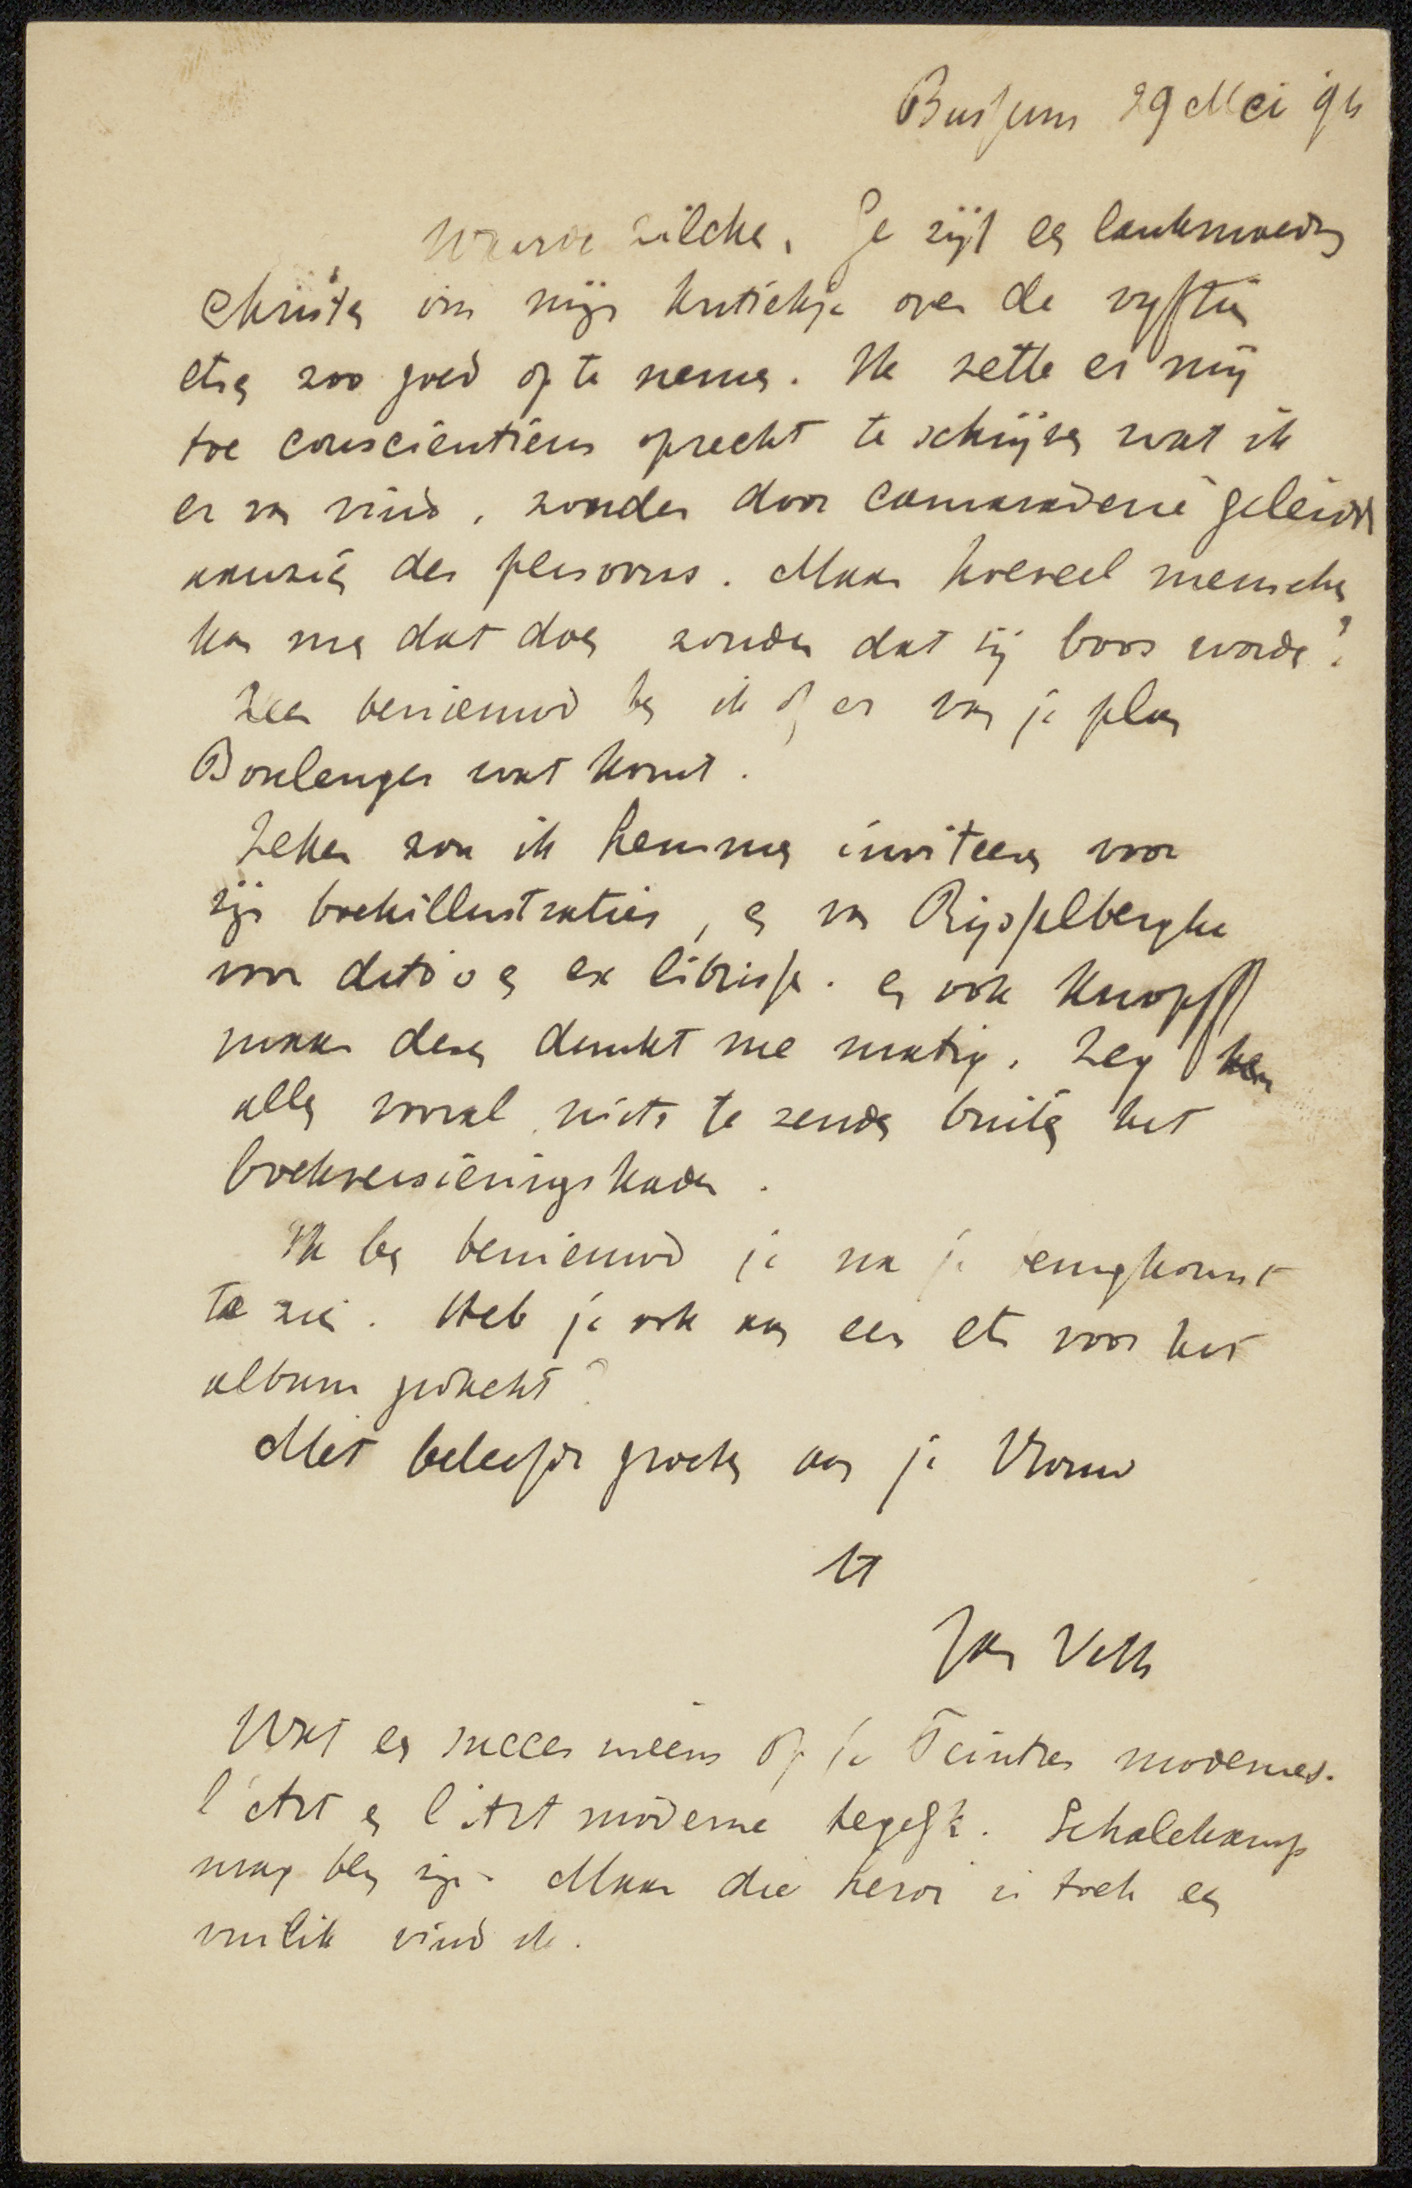 Bussum 29 Mei 94
Waarde Zilcken, Je zijt een lankmoedig
Christen om mijn kritiekje over de vijftien
etsen zoo goed op te nemen. Ik zette er mij
toe conscientieus oprecht te schrijven wat ik
er van vind, zonder door camaraderie geleid
aanzien des persoons. Maar hoeveel menschen
kan men dat doen zonder dat zij boos worden?
Zeer benieuwd ben ik of er van je plan
Boulenger wat komt.
Zeker zou ik hemmen inviteeren voor
zijn boekillustraties, en van Rijsselberghe
voor dito's en ex librissen. en ook Knopff
maar deze dunkt me matig. Zeg hen
allen vooral niets te zenden buiten het
boekversieringskader.
Ik ben benieuwd je na je terugkomst
te zien. Heb je ook aan een ets voor het
album gedacht?
Met beleefde groeten aan je Vrouw
tt
Jan Veth
Wat een succes ineens op je Peintres modernes.
l'Art en l'Art moderne tegelijk. Schalekamp
mag blij zijn. Maar die is toch een
vuilik vind ik.